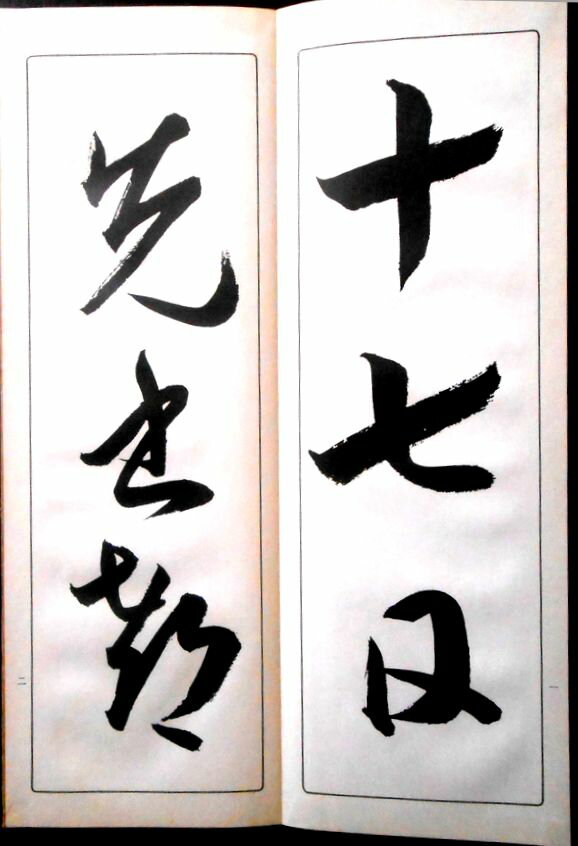 十七日
一
先書郗
二